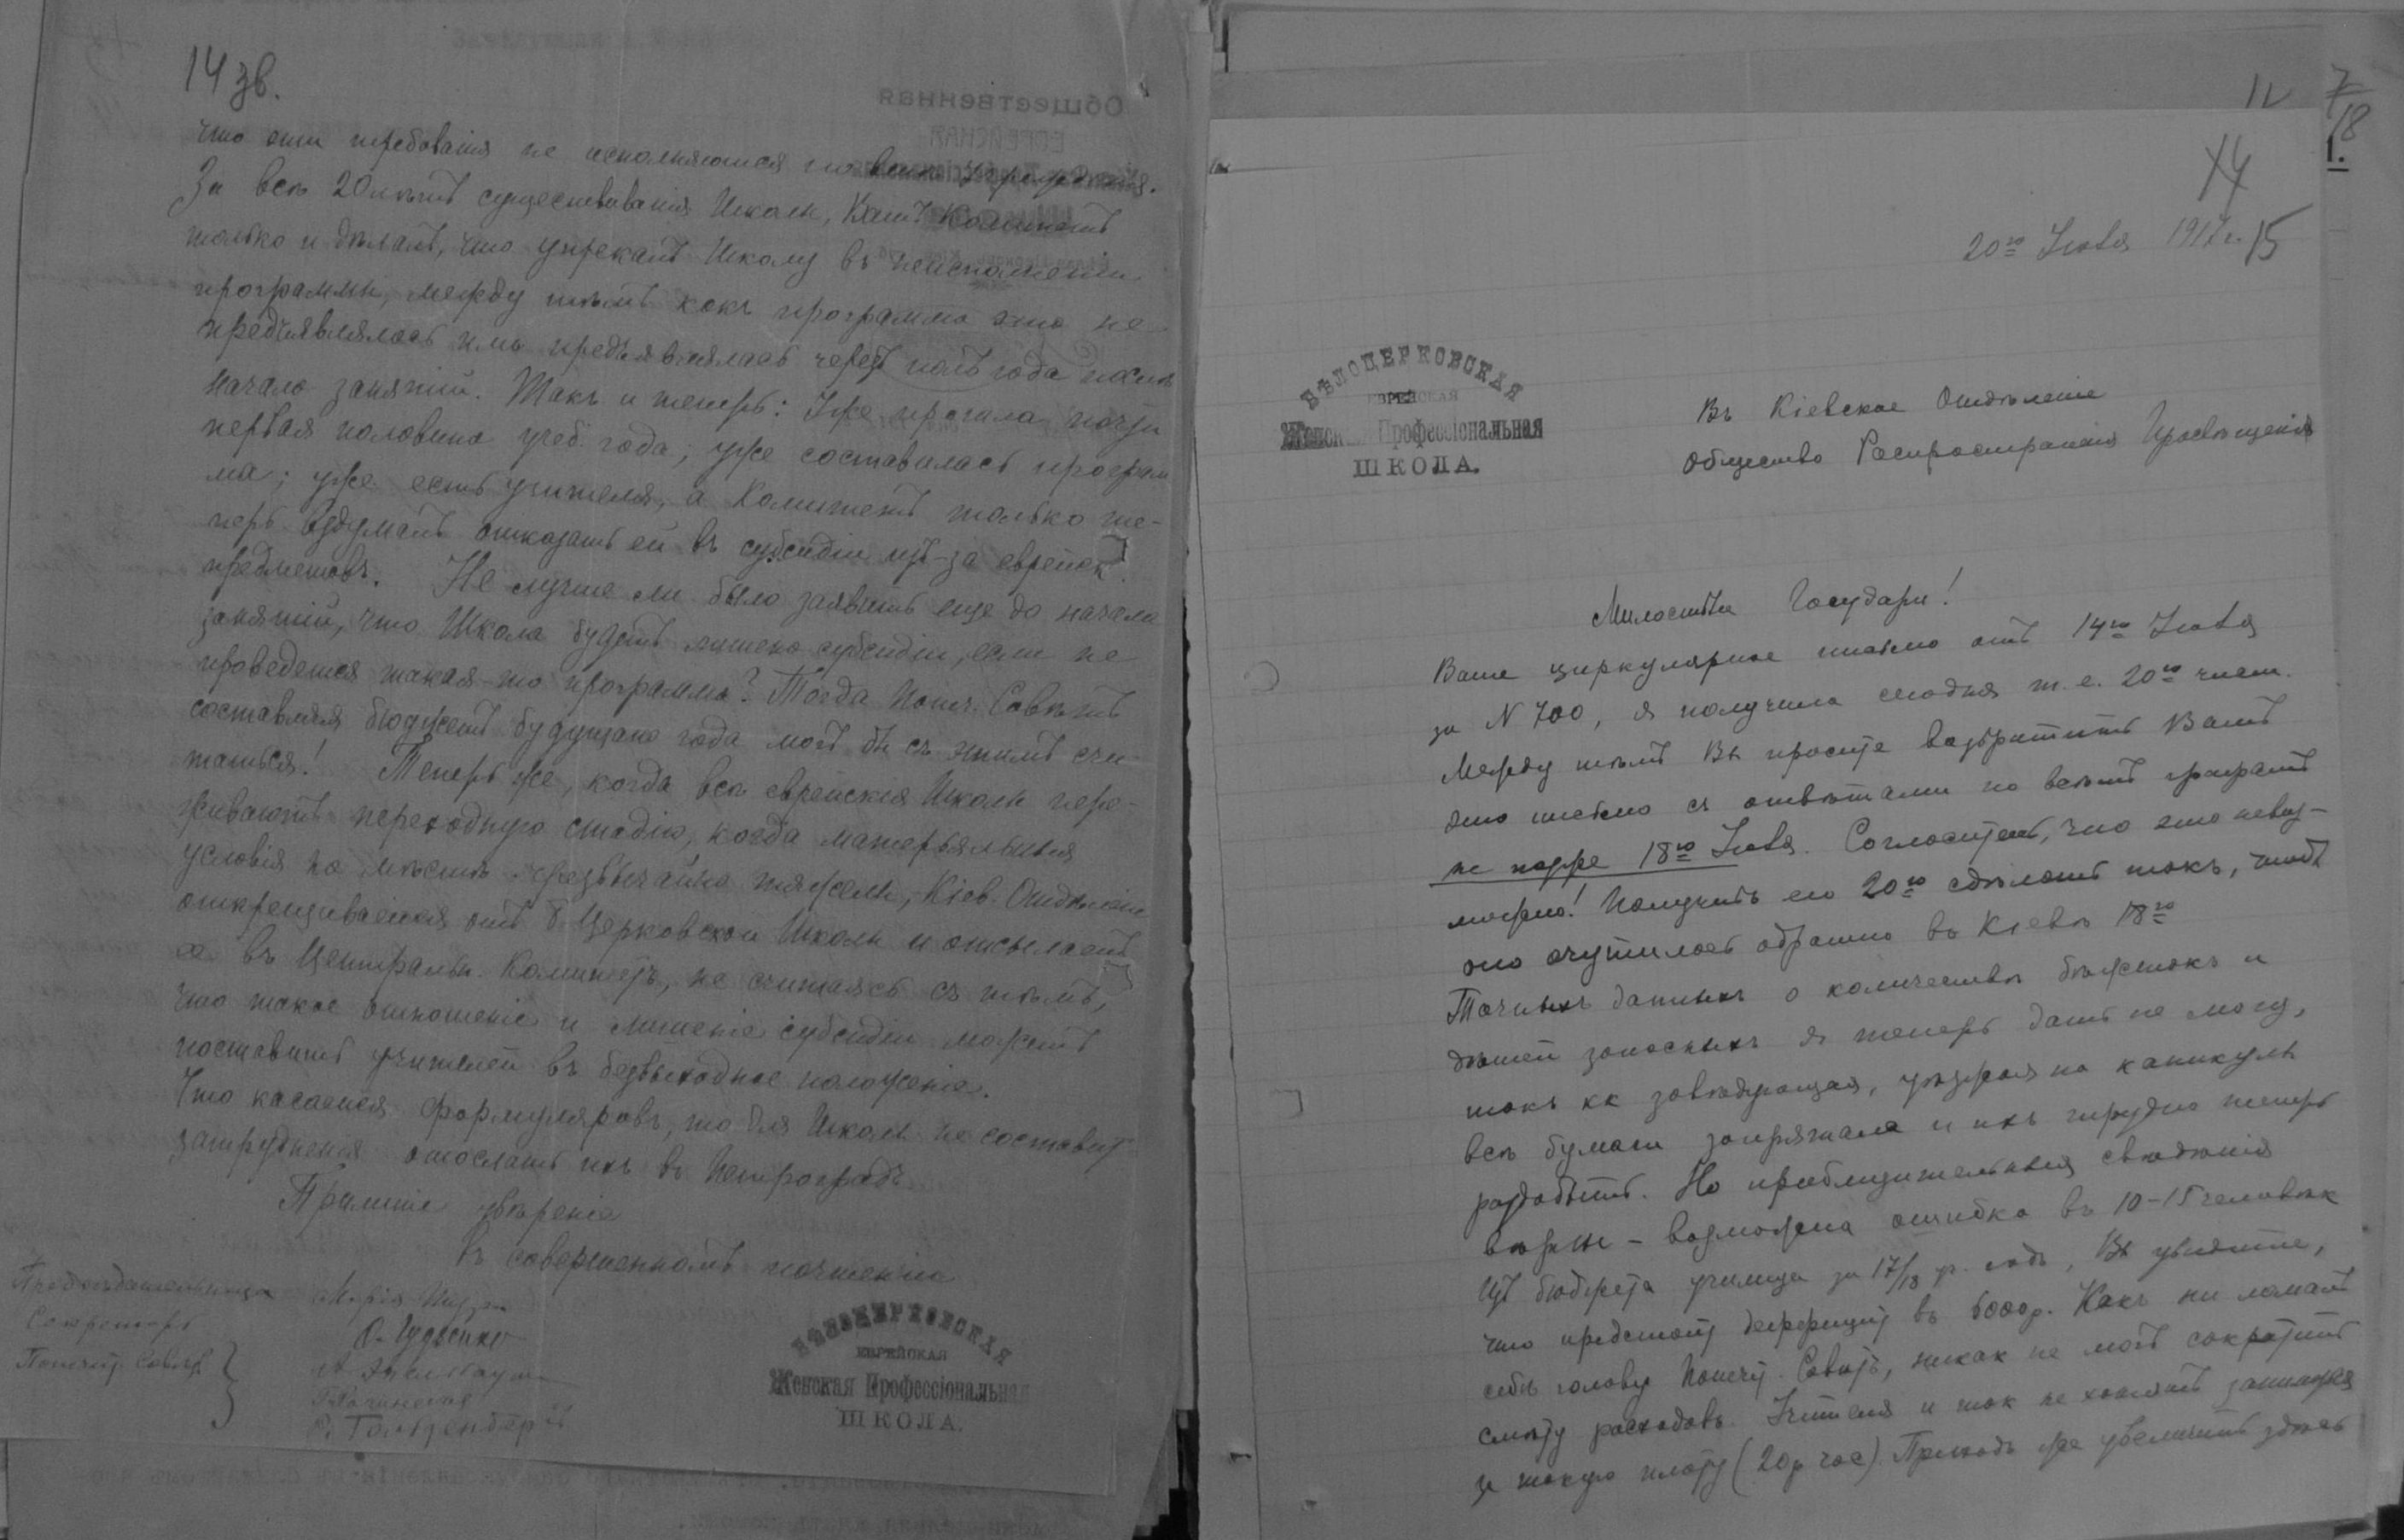 14 зв.
что эти требованія не исполняются
За всѣ 20 лѣтъ существованія Школы, Вашъ Комитетъ
только и дѣлалъ, что упрекалъ Школу въ неисполненіи
программы, между тѣмъ какъ программа эта не
предъявлялась или предъявлялась черезъ полъ года послѣ
начала занятій. Такъ и теперь: Уже прошла почти
первая половина учеб. года, уже составилась програм
ма; уже есть учителя, а Комитетъ только те-
перь вздумалъ отказать ей въ субсидіи изъ-за еврейск.
предметовъ. Не лучше ли было заявить еще до начала
занятій, что Школа будетъ лишена субсидіи, если не
проведется такая-то программа? Тогда Попеч. Совѣтъ
составляя бюджетъ будущаго года могъ бы съ этимъ счи-
таться! Теперь же, когда всѣ еврейскія Школы пере-
живаютъ переходную стадію, когда матерьяльныя
условія на мѣстѣ чрезвычайно тяжелы, Кіев. Отдѣленіе
открещивается отъ Б. Церковской Школы и отсылаетъ
ее въ Центральн. Комитетъ, не считаясь съ тѣмъ,
что такое отношеніе и лишеніе субсидіи можетъ
поставить учителей въ безвыходное положеніе.
Что касается формуляровъ, то для Школы не составитъ
затрудненія отослать ихъ въ Петроградъ
Примите увѣреніе
въ совершенномъ почтеніи
Предсѣдательница Марія
Секретарь
Попечит. Совѣта
Р. Гольденбергъ
БѢЛОЦЕРКОВСКАЯ
ЕВРЕЙСКАЯ
Женская Профессіональная
ШКОЛА.
Общественная
ЕВРЕЙСКАЯ
7/18
1.
14
15
20го Іюля 1917 г.
БѢЛОЦЕРКОВСКАЯ
ЕВРЕЙСКАЯ
Женская Профессіональная
ШКОЛА.
Въ Кіевское Отдѣленіе
Общества Распространенія Просвѣщенія
Милостивые Государи!
Ваше циркулярное письмо отъ 14го Іюля
за N 700, я получила сегодня т. е. 20го числа.
Между тѣмъ Вы просите возвратить Вамъ
это письмо съ отвѣтами по всѣмъ графамъ
не позже 18го Іюля. Согласитесь, что это невоз-
можно! Получить его 20го сдѣлать такъ, чтобы
оно очутилось обратно въ Кіевѣ 18го
Точныхъ данныхъ о количествѣ бѣженокъ и
дѣтей запасныхъ я теперь дать не могу,
такъ кк завѣдующая, уѣзжая на каникулы
всѣ бумаги запрятала и ихъ трудно теперь
раздобыть. Но приблизительныя свѣдѣнія
вѣрны – возможна ошибка въ 10-15 человѣк
Изъ бюджета училища за 17/18 уч. годъ, Вы увидите,
что предстоитъ деффицитъ въ 6000 р. Какъ ни ломалъ
себѣ голову Попечит. Совѣтъ, никак не могъ сократить
смѣту расходовъ. Учителя и так не хотятъ заниматься
за такую плату (20 р час). Приходъ же увеличить здѣсь